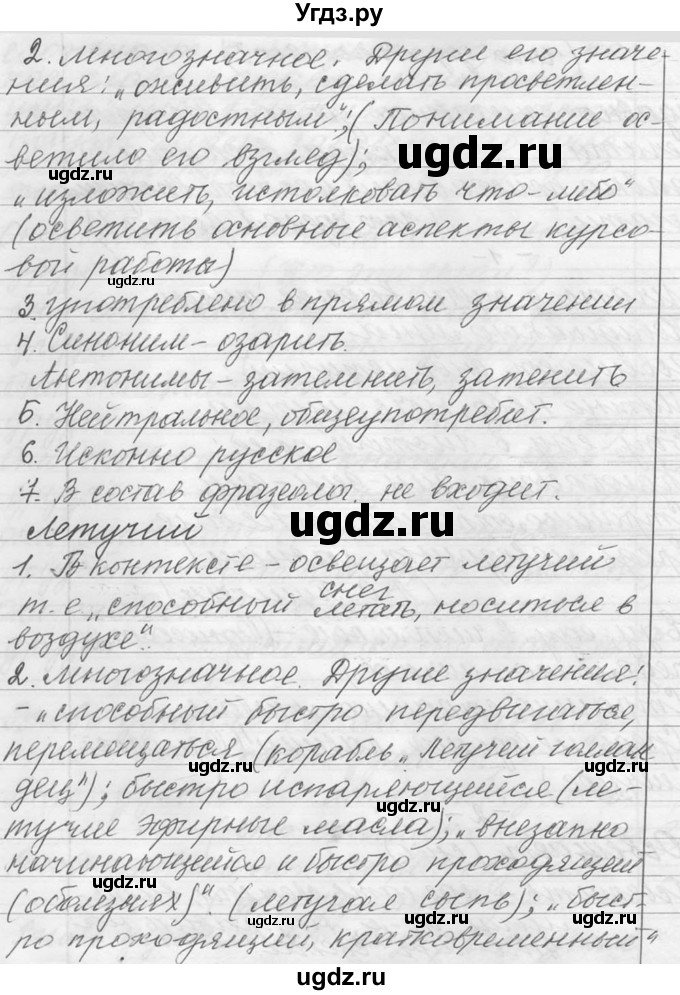 Угдз.ру
2. Многозначное. Другие его значе-
ния: „оживить, сделать просветлен-
ным, радостным“; (Понимание ос-
ветило его взгляд);
„изложить, истолковать что-либо“
(осветить основные аспекты курсо-
вой работы)
3. употреблено в прямом значении
4. Синоним – озарить.
Антонимы – затемнить, затенить
5. Нейтральное, общеупотребит.
6. Исконно русское
7. В состав фразеолог. не входит.
Летучий
1. В контексте – освещает летучий
снег
т. е „способный летать, носиться в
воздухе“.
2. Многозначное. Другие значения:
– „способный быстро передвигаться,
перемещаться (корабль „Летучий голлан
дец“); быстро испаряющийся (ле-
тучие эфирные масла); „внезапно
начинающийся и быстро проходящий
(оболезнях)“. (летучая сыпь); „быст-
ро проходящий, кратковременный“
ugdz.ru
ugdz.ru
ugdz.ru
ugdz.ru
ugdz.ru
ugdz.ru
ugdz.ru
ugdz.ru
ugdz.ru
ugdz.ru
ugdz.ru